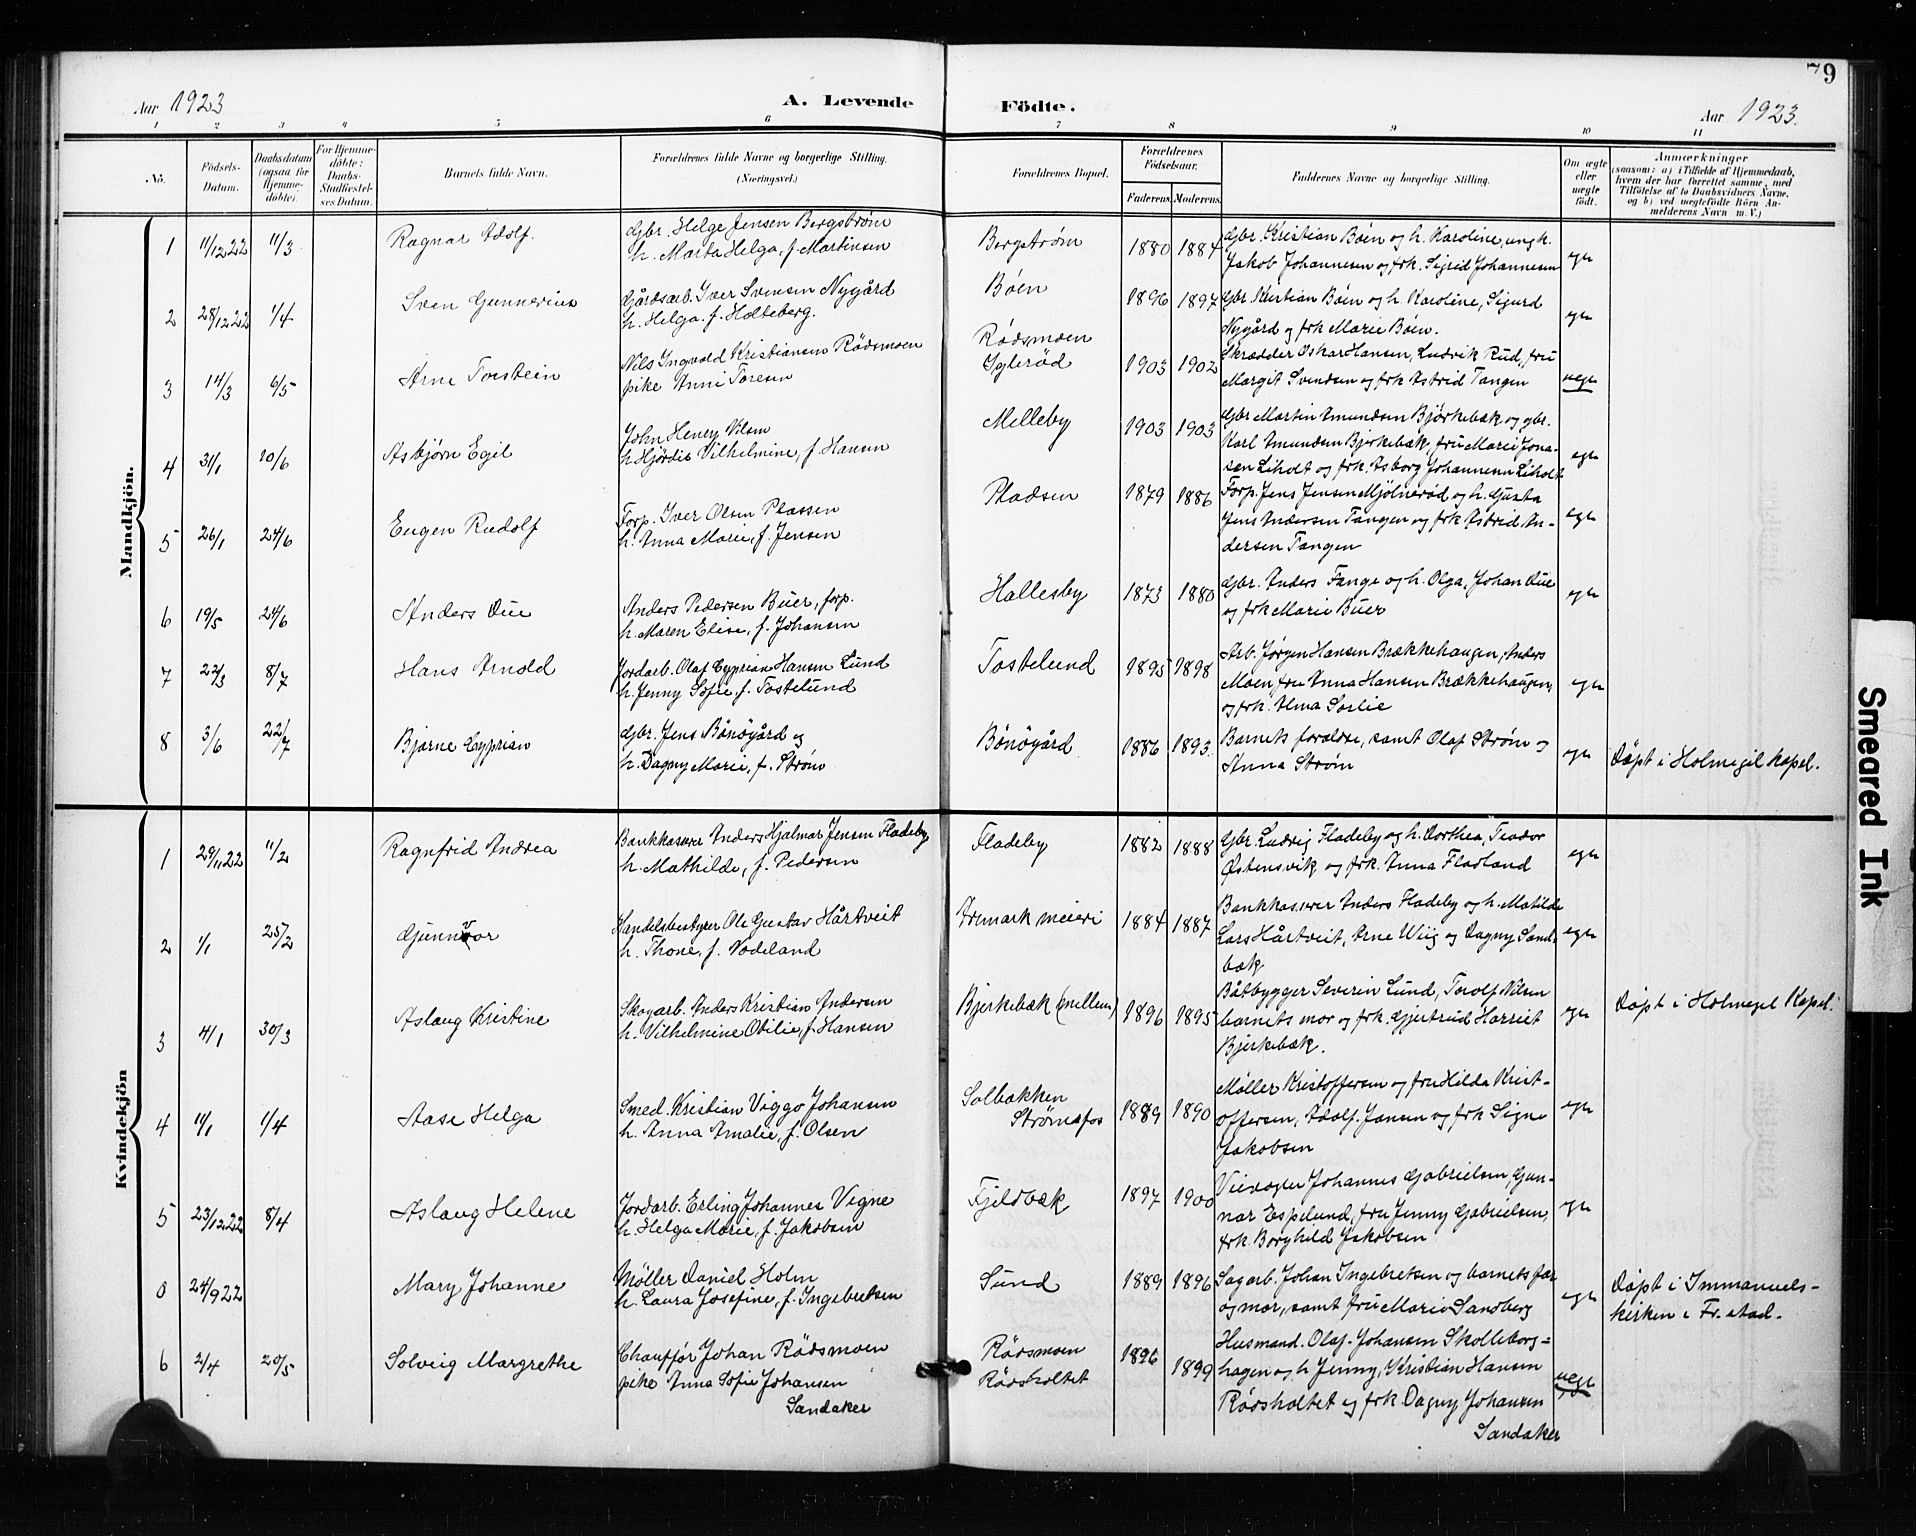 79
Aar 1923
A. Levende Födte.
Aar 1923.
1 2 3 4 5 6 7 8 9 10 11
No.
Födsels-Datum.
Daabsdatum (ogsaa for Hjemme-döbte).
For Hjemme-döbte: Daabs-Stadfæstel-ses Datum.
Barnets fulde Navn.
Forældrenes fulde Navne og borgerlige Stilling.
(Næringsvei.)
Forældrenes Bopæl.
Forældrenes Födselsaar.
Faderens. Moderens.
Faddernes Navne og borgerlige Stilling.
Om ægte eller uægte födt.
Anmærkninger
(saasom: a) i Tilfælde af Hjemmedaab, hvem der har forrettet samme, med Tilföielse af to Daabsvidners Navne, og b) ved uægtefödte Börn Anmelderens Navn m. V.)
Mandkjön.
1 11/12 22 11/3 Ragnar Adolf. Gbr. Helge Jensen Bergstrøm
h. Marta Helga, f. Martinsen
Bergstrøm 1880 1884 Gbr. Kristian Bøen og h. Karoline, ungk.
Jakob Johannesen og frk. Sigrid Johannesen
egte
2 28/12 22 1/4 Sven Gunnerius Gårdsarb. Iver Svensen Nygård
h. Helga, f. Holteberg.
Bøen 1896 1897 Gbr. Kristian Bøen og h. Karoline, Sigurd
Nygård og frk Marie Bøen.
egte
3 14/3 6/5 Arne Torstein Nils Ingvald Kristiansen Rødsmoen
pike Anni Toresen
Rødsmoen
Ygterød
1903 1902 Skrædder Oskar Hansen, Ludvik Rud, fru
Margit Svendsen og frk Astrid Tangen
uegte
4 31/1 10/6 Asbjørn Egil John Henry Nilsen
h. Hjørdis Vilhelmine, f. Hansen
Melleby 1903 1903 Gbr Martin Amundsen Bjørkebæk og gbr.
Karl Amundsen Bjerkebæk, fru Marie Jona-
sen Liholt og frk. Asborg Johannesen Liholt
egte
5 26/1 24/6 Eugen Rudolf Forp. Iver Olsen Plassen
h. Anna Marie, f. Jensen
Pladsen 1879 1886 Forp. Jens Jensen Mjølnerød og h. Gusta
Jens Andersen Tangen og frk Astrid An-
dersen Tangen
egte
6 19/5 24/6 Anders Due Anders Pedersen Buer, forp.
h. Maren Elise, f. Johansen
Hallesby 1873 1880 Gbr. Anders Fange og h. Olga, Johan Due
og frk Marie Buer
egte
7 22/3 8/7 Hans Arnold Jordarb. Olaf Cyprian Hansen Lund
h. Jenny Sofie, f. Tostelund
Tostelund 1895 1898 Arb. Jørgen Hansen Brækkehaugen, Anders
Moen, fru Anna Hansen Brækkehaugen,
og frk. Alma Sørlie
egte
8 3/6 22/7 Bjarne Cyprian Gbr. Jens Bønøgård og
h. Dagny Marie, f. Strøm
Bønøgård 1886 1893. Barnets foreldre, samt Olaf Strøm og
Anna Strøm
egte Døpt i Holmegil kapel.
Kvindekjön
1 29/11 22 11/2 Ragnfrid Andrea Bankkaserer Anders Hjalmar Jensen Fladeby
h. Mathilde, f. Pedersen
Fladeby 1882 1888 Gbr. Ludvig Fladeby og h. Dorthea, Teodor
Østensvik og frk. Anna Fladland
egte
2 1/1 25/2 Gunnvor Handelsbestyrer Ole Gustav Hårtveit
h. Thone, f. Vodeland
Aremark meieri 1884 1887 Bankkaserer Anders Fladeby og h. Matilde
Lars Hårtveit, Arne Wiig og Dagny Sand-
bæk
egte
3 4/1 30/3 Aslaug Kristine Skogarb. Anders Kristian Andersen
h. Vilhelmine Otilie, f. Hansen
Bjerkebæk (mellem) 1896 1895 Båtbygger Severin Lund, Torolf Nilsen
barnets mor og frk. Gjertrud Harriet
Bjerkebæk.
egte Døpt i Holmegil Kapel.
4 11/1 1/4 Aase Helga Smed. Kristian Viggo Johansen
h. Anna Amalie, f. Olsen
Solbakken
Strømsfos
1889 1890 Møller Kristoffersen og fru Hilda Krist-
offersen, Adolf Jansen og frk Signe
Jakobsen
egte
5 23/12 22 8/4 Aslaug Helene Jordarb. Erling Johannes Vigne
h. Helga Marie, f. Jakobsen
Fjeldbæk 1897 1900 Veivogter Johannes Gabrielsen, Gun-
nar Espelund, fru Jenny Gabrielsen,
frk. Borghild Jakobsen
egte
0 24/9 22 Mary Johanne Møller Daniel Holm
h. Laura Josefine, f. Ingebretsen
Sund 1889 1896 Sagarb. Johan Ingebretsen og barnets far
og mor, samt fru Marie Sandberg
egte Døpt i Immanuels-
kirken i Fr.stad.
6 2/4 20/5 Solveig Margrethe Chauffør Johan Rødsmoen
pike Anna Sofie Johansen
Sandaker
Rødsmoen
Rødsholtet
1896 1899 Husmand. Olaf Johansen Skolleborg-
hagen og h Jenny, Kristian Hansen
Rødsholtet og frk. Dagny Johansen
Sandaker
uegte
Smeared Ink